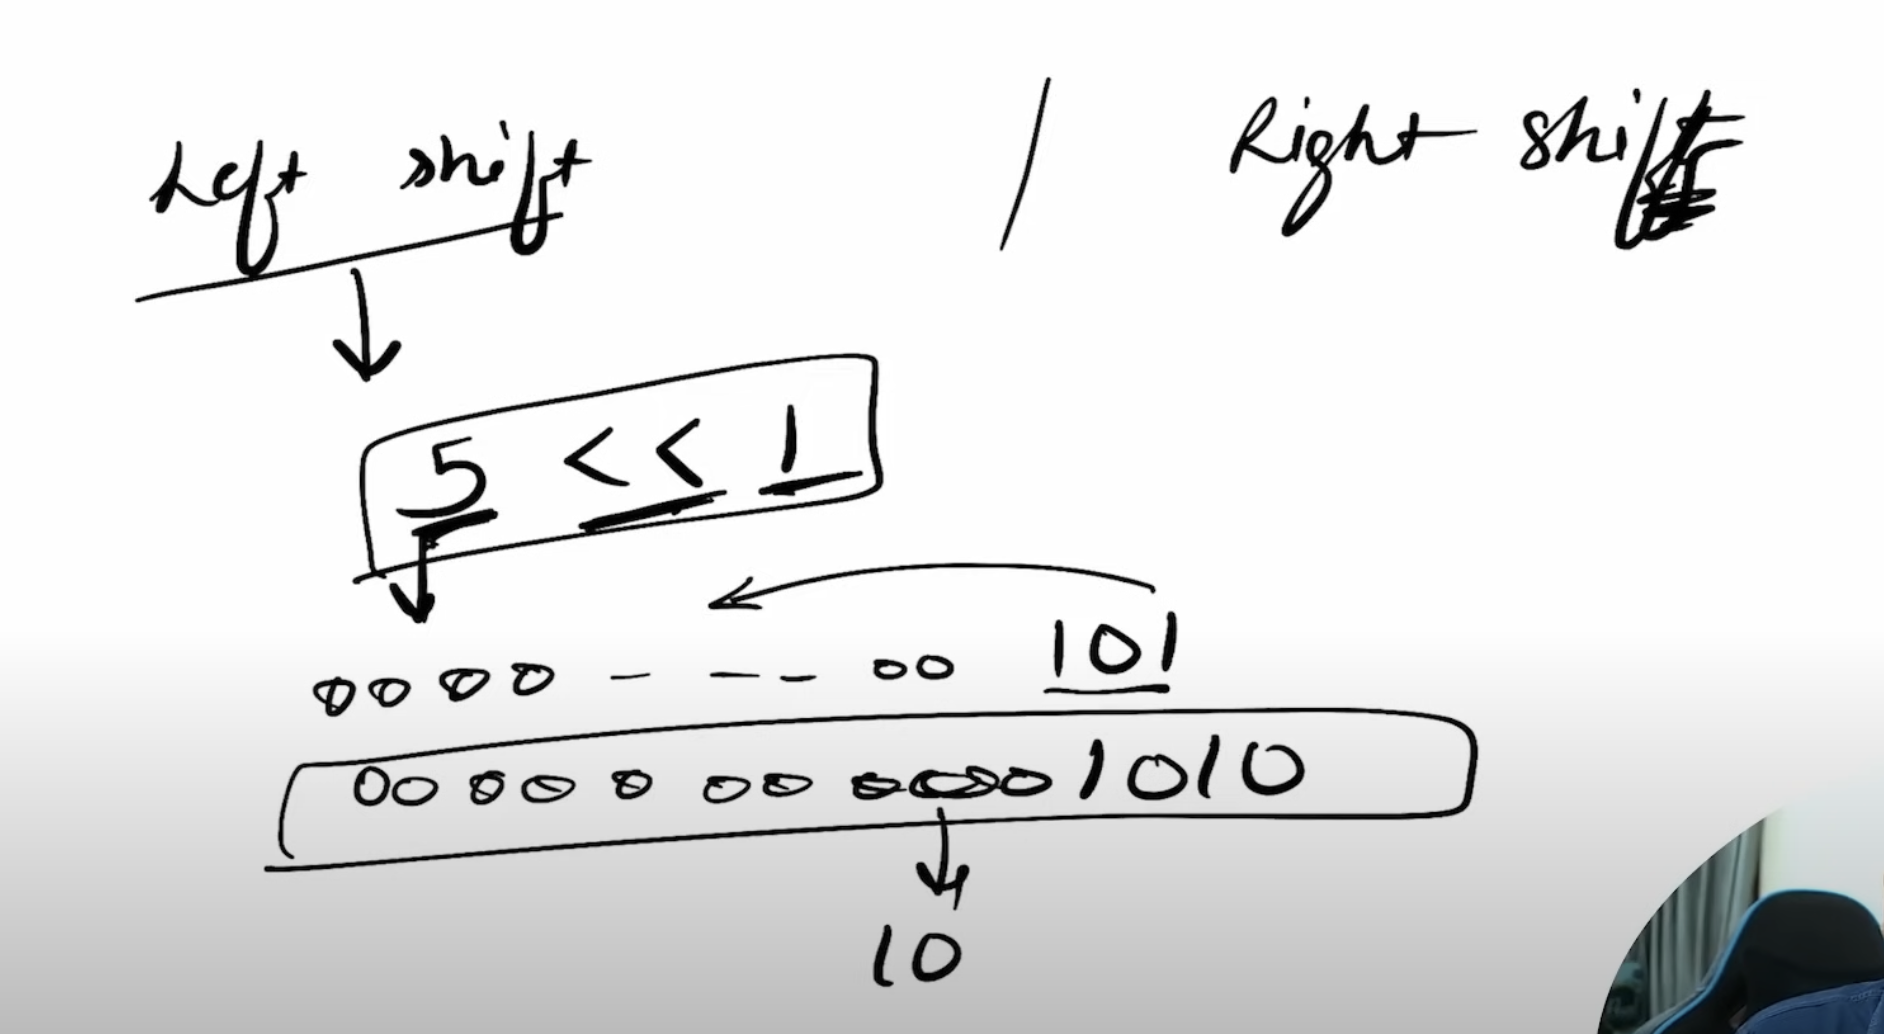 Left shift / Right shift
5 << 1
0000 - - - - 00 101
00 00 0 00 0000 1010
10